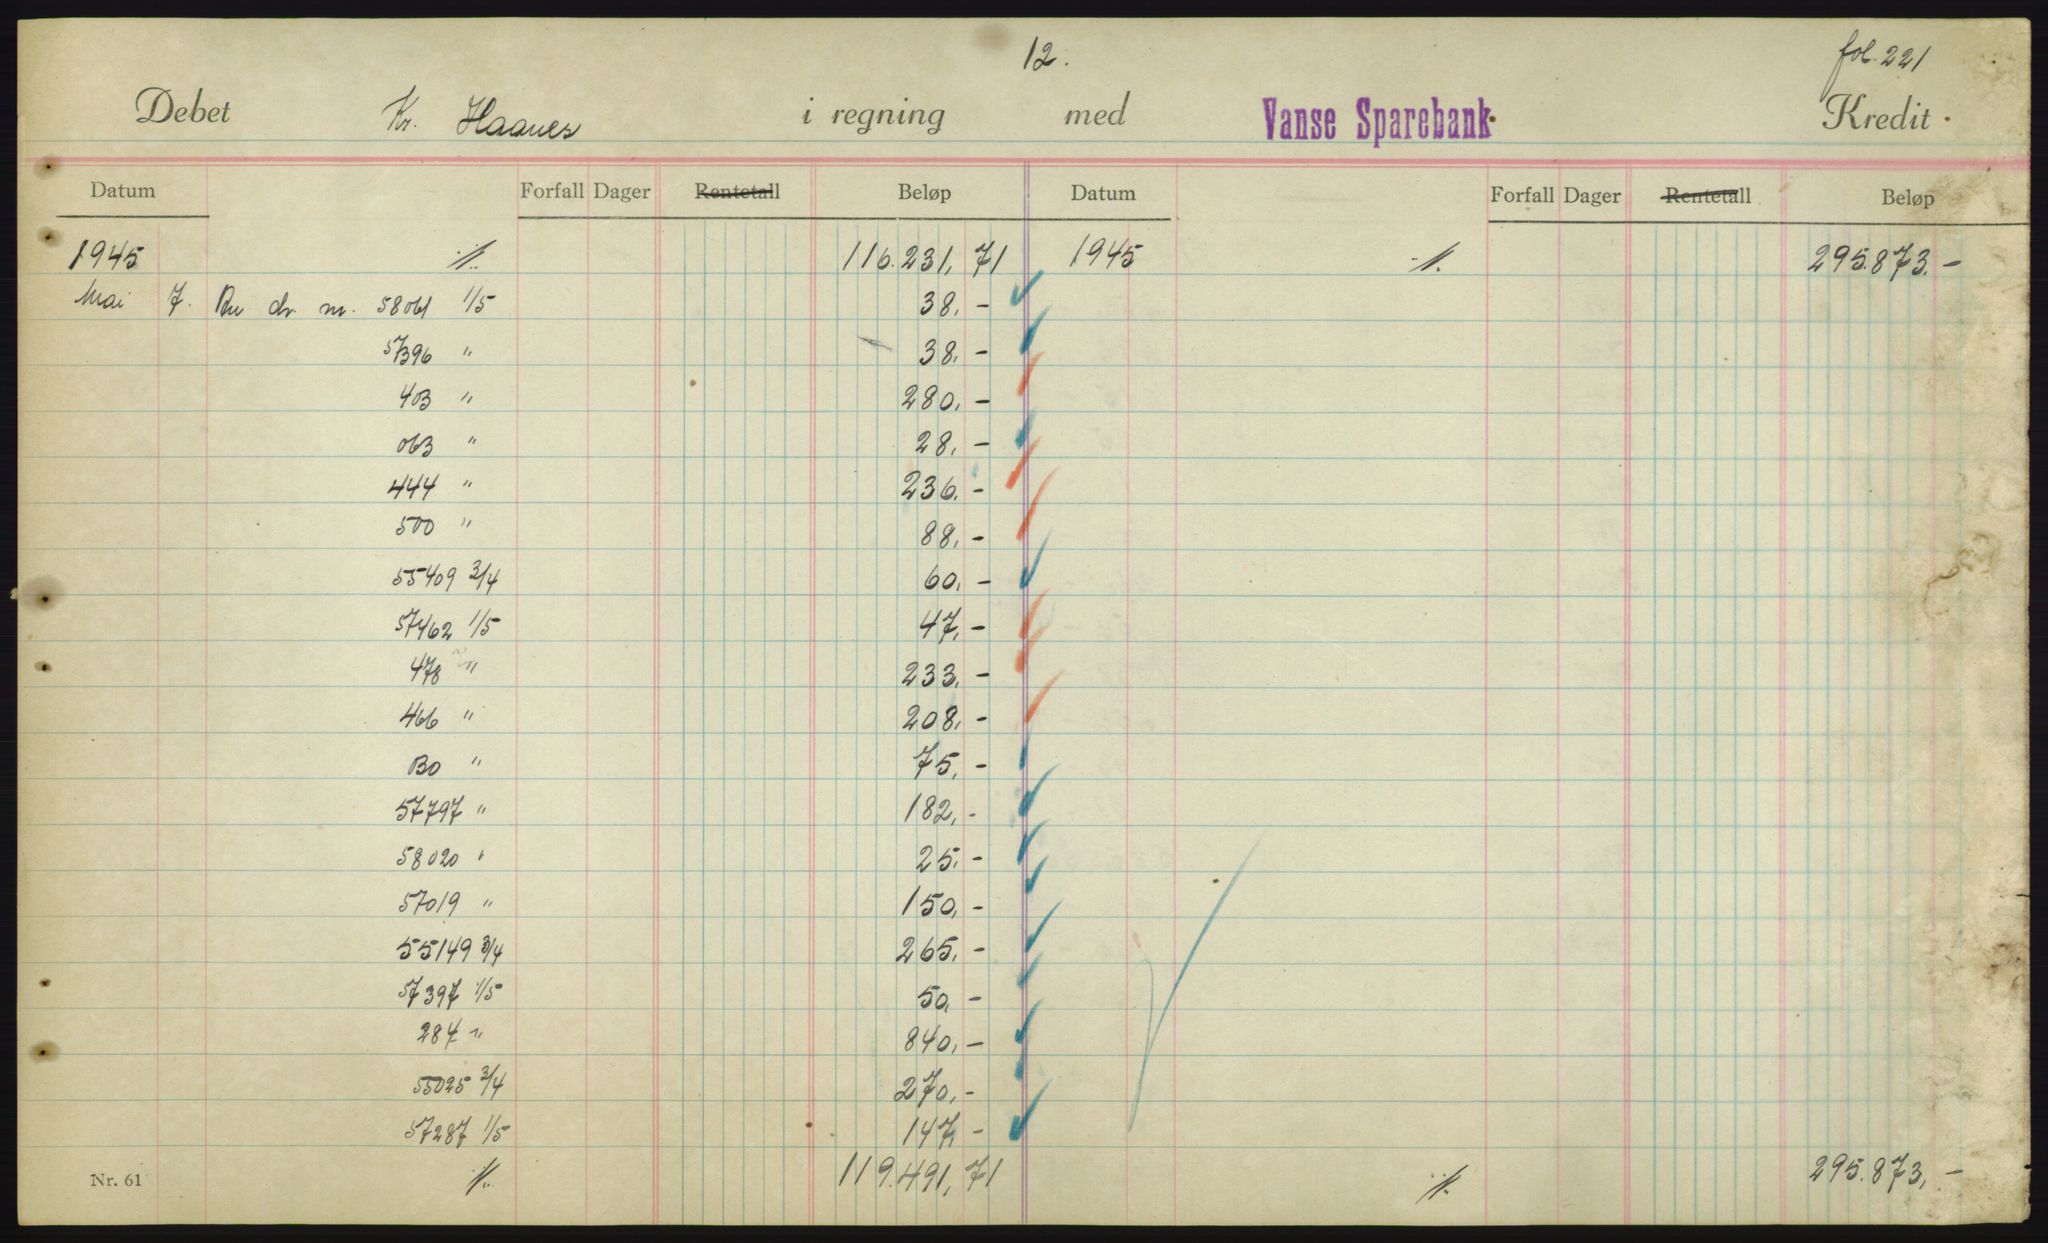 12.
fol. 221
Debet Kr. Haanes i regning med Vanse Sparebank Kredit
Datum Forfall Dager Rentetall Beløp Datum Forfall Dager Rentetall Beløp
1945 ·/. 116.231,71 1945 ·/. 295.873.-
Mai 7. dr. nr. 58061 1/5 38,-
57396 " 38,-
403 " 280,-
063 " 28,-
444 " 236,-
500 " 88,-
55409 3/4 60,-
57462 1/5 47,-
478 " 233,-
466 " 208,-
" 75,-
57797 " 182,-
58020 " 25,-
57019 " 150,-
55149 3/4 265,-
57397 1/5 50,-
284 " 840,-
55025 3/4 270,-
57287 1/5 147,-
Nr. 61 ·/. 119.491,71 ·/. 295.873,-